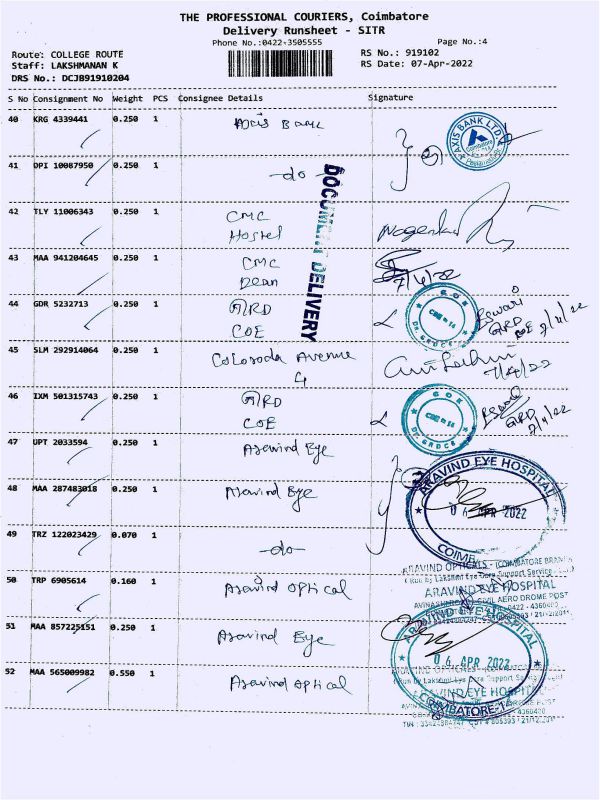 THE PROFESSIONAL COURIERS, Coimbatore
Delivery Runsheet - SITR
Phone No.:0422-3505555
Page No.:4
Route: COLLEGE ROUTE
RS No.: 919102
Staff: LAKSHMANAN K
RS Date: 07-Apr-2022
DRS No.: DCJB91910204
S No Consignment No Weight PCS Consignee Details Signature
40 KRG 4339441 0.250 1 Axis Bank
AXIS BANK LTD
Coimbatore
41 DPI 10087950 0.250 1 -do-
DOCUMENT DELIVERY
42 TLY 11006343 0.250 1 CMC
Hostel
43 MAA 941204645 0.250 1 CMC
Dean
7/4/22
44 GDR 5232713 0.250 1 GRD
COE
COE
CBE - 14
Dr. GRDCS
Eswari
GRD
COE 7/4/22
45 SLM 292914064 0.250 1 Avenue
7/4/22
46 IXM 501315743 0.250 1 GRD
COE
COE
CBE - 14
Dr. GRDCS
GRD
7/4/22
47 UPT 2033594 0.250 1 Aravind Eye
48 MAA 287483018 0.250 1 Aravind Eye
ARAVIND EYE HOSPITAL
06 APR 2022
COIMB
49 TRZ 122023429 0.070 1 -do-
ARAVIND OPTICALS - (COIMBATORE BRANCH
(Run by Lakshmi Eye Care Support Service
50 TRP 6905614 0.160 1 Aravind Optical
ARAVIND EYE HOSPITAL
CIVIL AERO DROME POST
51 MAA 857225151 0.250 1 Aravind Eye
ARAVIND EYE HOSPITAL
06 APR 2022
52 MAA 565009982 0.550 1 Aravind Optical
ARAVIND EYE HOSPITAL
COIMBATORE-14